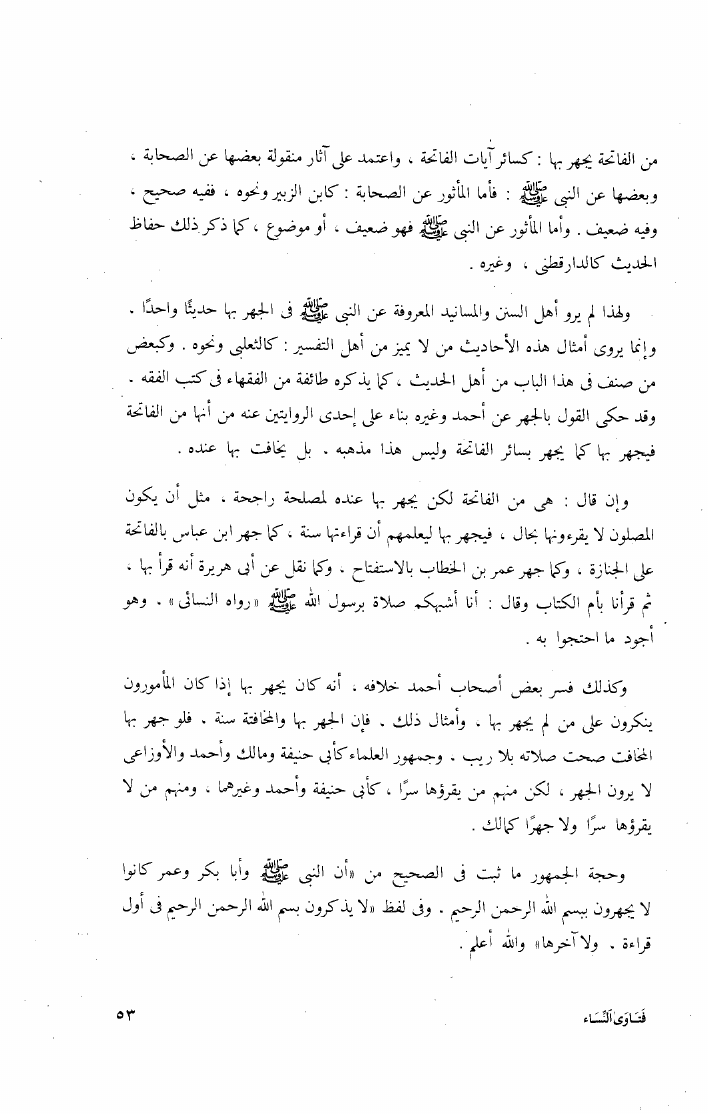 من الفاتحة يجهر بها : كسائر آيات الفاتحة ، واعتمد على آثار منقولة بعضها عن الصحابة ،
وبعضها عن النبى ﷺ : فأما المأثور عن الصحابة : كابن الزبير ونحوه ، ففيه صحيح ،
وفيه ضعيف . وأما المأثور عن النبى ﷺ فهو ضعيف ، أو موضوع ، كما ذكر ذلك حفاظ
الحديث كالدارقطنى ، وغيره .
ولهذا لم يرو أهل السنن والمسانيد المعروفة عن النبى ﷺ فى الجهر بها حديثًا واحدًا .
وإنما يروى أمثال هذه الأحاديث من لا يميز من أهل التفسير : كالثعلبى ونحوه . وكبعض
من صنف فى هذا الباب من أهل الحديث ، كما يذكره طائفة من الفقهاء فى كتب الفقه .
وقد حكى القول بالجهر عن أحمد وغيره بناء على إحدى الروايتين عنه من أنها من الفاتحة
فيجهر بها كما يجهر بسائر الفاتحة وليس هذا مذهبه ، بل يخافت بها عنده .
وإن قال : هى من الفاتحة لكن يجهر بها عنده لمصلحة راجحة ، مثل أن يكون
المصلون لا يقرءونها بحال ، فيجهر بها ليعلمهم أن قراءتها سنة ، كما جهر ابن عباس بالفاتحة
على الجنازة ، وكما جهر عمر بن الخطاب بالاستفتاح ، وكما نقل عن أبى هريرة أنه قرأ بها ،
ثم قرأنا بأم الكتاب وقال : أنا أشبهكم صلاة برسول الله ﷺ «رواه النسائى» . وهو
أجود ما احتجوا به .
وكذلك فسر بعض أصحاب أحمد خلافه ، أنه كان يجهر بها إذا كان المأمورون
ينكرون على من لم يجهر بها . وأمثال ذلك . فإن الجهر بها والمخافتة سنة . فلو جهر بها
المخافت صحت صلاته بلا ريب . وجمهور العلماء كأبى حنيفة ومالك وأحمد والأوزاعى
لا يرون الجهر ، لكن منهم من يقرؤها سرًّا ، كأبى حنيفة وأحمد وغيرهما ، ومنهم من لا
يقرؤها سرًّا ولا جهرًا كمالك .
وحجة الجمهور ما ثبت فى الصحيح من «أن النبى ﷺ وأبا بكر وعمر كانوا
لا يجهرون ببسم الله الرحمن الرحيم . وفى لفظ «لا يذكرون بسم الله الرحمن الرحيم فى أول
قراءة . ولا آخرها» والله أعلم .
فَتَاوَىٰ النِّسَاء
٥٣